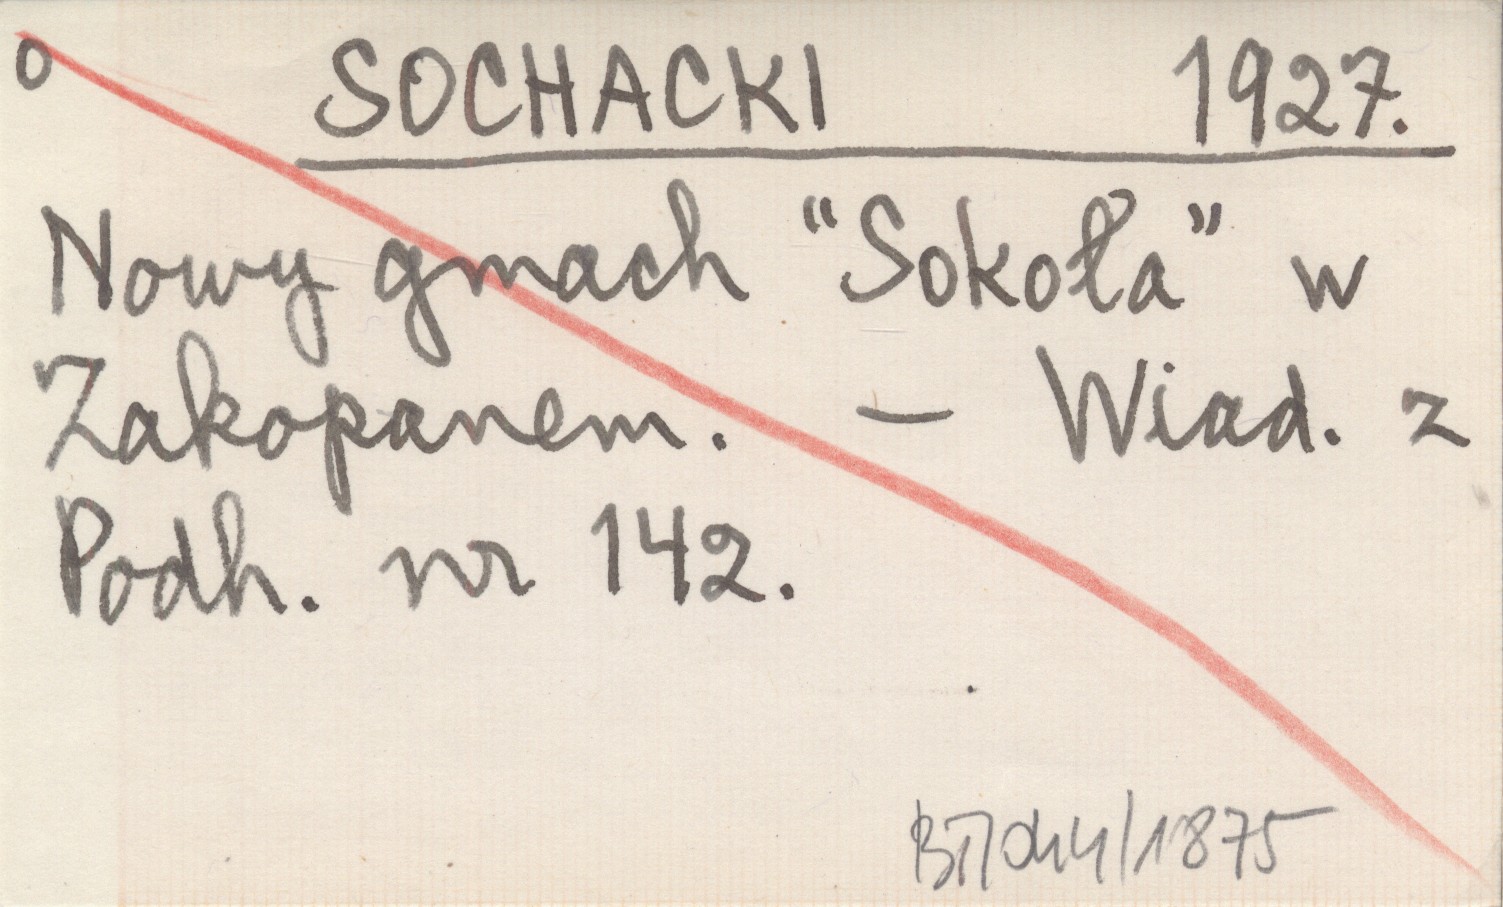 o SOCHACKI 1927.
Nowy gmach “Sokoła” w
Zakopanem. – Wiad. z
Podh. nr 142.
1875